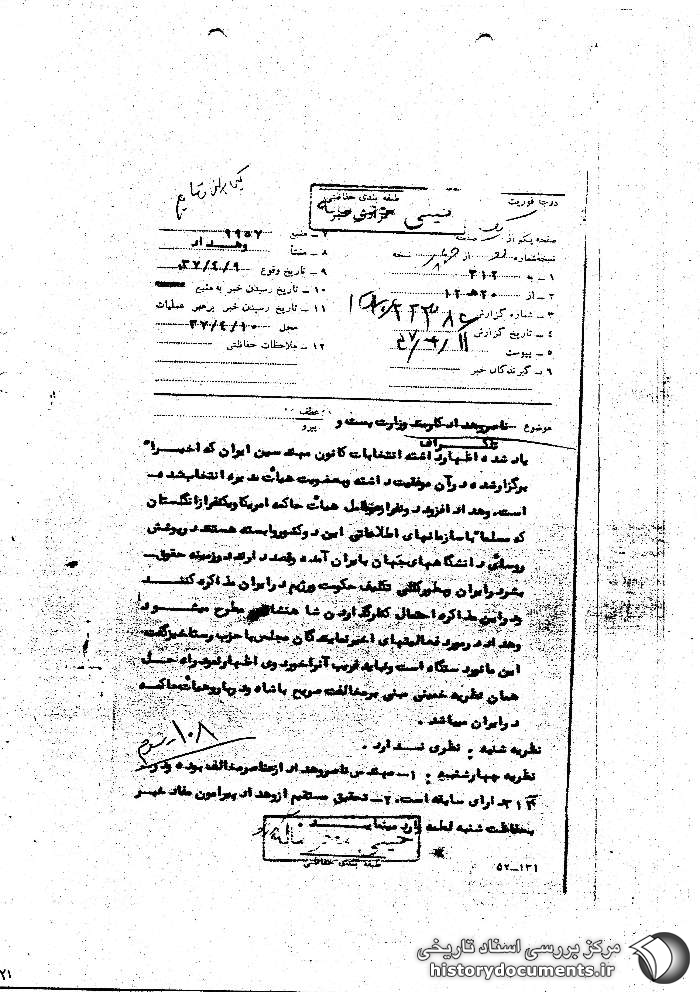 درجه فوریت
طبقه بندی حفاظتی
گزارش خبر
صفحه یکم از صفحه
نسخه شماره از نسخه
۱ – به ۳۱۲
۲ – از ۲۰ هـ ۱۲
۳ – شماره گزارش
۴ – تاریخ گزارش
۵ – پیوست
۶ – گیرندگان خبر
۷ – منبع ۹۹۵۷
۸ – منشأ وهداد
۹ – تاریخ وقوع ۳۷/۴/۹
۱۰ – تاریخ رسیدن خبر به منبع
۱۱ – تاریخ رسیدن خبر برهبر عملیات
محل ۳۷/۴/۱۰
۱۲ – ملاحظات حفاظتی
موضوع – ناصر وهداد کارمند وزارت پست و
تلگراف
عطف
پیرو
یاد شده اظهار داشته انتخابات کانون مهندسین ایران که اخیرا"
برگزار شده در آن موفقیت داشته و بعضویت هیأت مدیره انتخاب شده
است. وهداد افزود دو نفر از عوامل هیأت حاکمه امریکا و یکنفر از انگلستان
که مسلما" با سازمانهای اطلاعاتی این دو کشور وابسته هستند در پوشش
روسای دانشگاههای جهان بایران آمده و قصد دارند در زمینه حقوق
بشر در ایران و بطور کلی تکلیف حکومت و رژیم در ایران مذاکره کنند
و در این مذاکره احتمال کنار گذاردن شاهنشاه مطرح میشود
وهداد در مورد فعالیتهای اخیر نمایندگان مجلس با حزب رستاخیز گفت
این مانور دستگاه است و نباید فریب آنرا خورد وی اظهار نمود راه حل
همان نظریه خمینی مبنی بر مخالفت صریح با شاه و دربار و هیأت حاکمه
در ایران میباشد .
نظریه شنبه : نظری ندارد .
نظریه چهارشنبه : ۱ – مهندس ناصر وهداد از عناصر مخالف بوده و در
۳۱۲ دارای سابقه است. ۲ – تحقیق مستقیم از وهداد پیرامون مفاد خبر
بحفاظت شنبه لطمه وارد مینماید .
۱۰۸
طبقه بندی حفاظتی
۱۳۱–۵۲
۲۱
مرکز بررسی اسناد تاریخی
historydocuments.ir